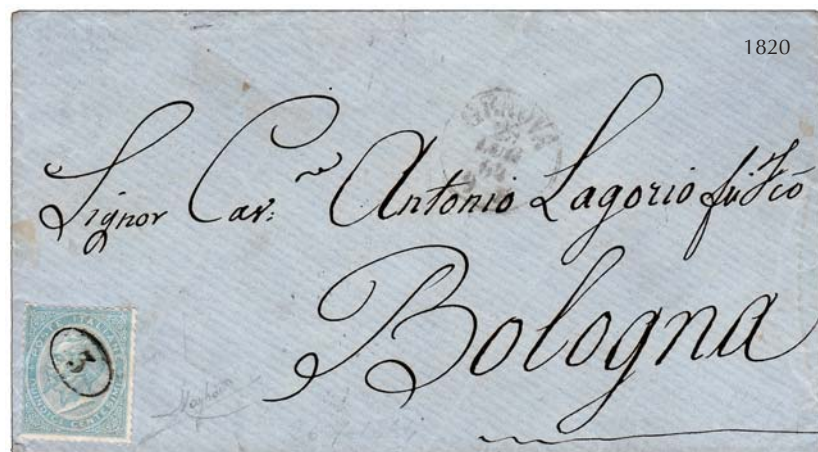 1820
GENOVA
Signor Cav:re Antonio Lagorio fu Fcō
Bologna
POSTE ITALIANE
3
QUINDICI CENTESIMI